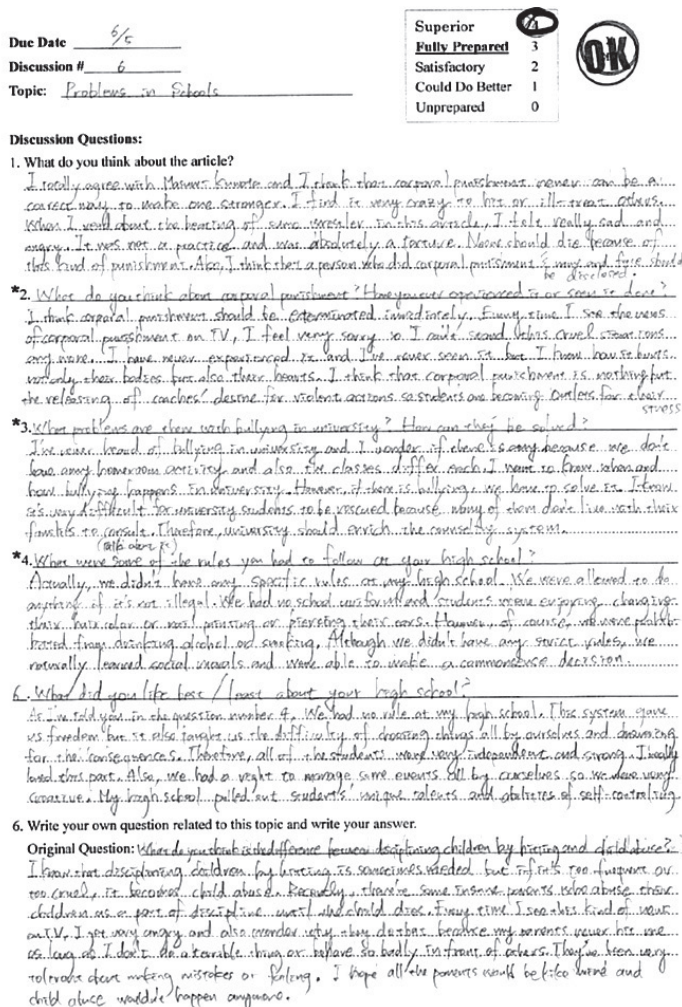 Due Date 6/5
Discussion # 6
Topic: Problems in Schools
Superior 4
Fully Prepared 3
Satisfactory 2
Could Do Better 1
Unprepared 0
OK
Discussion Questions:
1. What do you think about the article?
I totally agree with and I think that corporal punishment never can be a
correct way to make one stronger. I find it very crazy to hit or ill-treat others.
When I read about the beating of sumo wrestler in this article, I felt really sad and
angry. It was not a practice and was absolutely a torture. Noone should die because of
this kind of punishment. Also, I think that a person who did corporal punisment's name and face should
be disclosed.
*2. What do you think about corporal punishment? Have you ever experienced it or seen it done?
I think corporal punishment should be exterminated immediately. Every time I see the news
of corporal punishment on TV, I feel very sorry so I can't stand this cruel situations
any more. I have never experienced it and I've never seen it but I know how it hurts
not only their bodies but also their hearts. I think that corporal punishment is nothing but
the releasing of coaches' desire for violent actions so students are becoming outlets for their
stress
*3. What problems are there with bullying in university? How can they be solved?
I've never heard of bullying in university and I wonder if there is any because we don't
have any homeroom activity and also the classes differ each. I want to know when and
how bullying happens in university. However, if there is bullying, we have to solve it. I know
it's very difficult for university students to be rescued because many of them don't live with their
families to consult. Therefore, university should enrich the counseling system.
(talk about it)
*4. What were some of the rules you had to follow at your high school?
Actually, we didn't have any specific rules at my high school. We were allowed to do
anything if it's not illegal. We had no school uniform and students were enjoying changing
their hair color or nail printing or piersing their ears. However, of course, we were prohib-
ited from drinking alchohol and smoking. Although we didn't have any strict rules, we
naturally learned social morals and were able to make a commonsense decision.
5. What did you like best / least about your high school?
As I've told you in the question number 4, We had no rule at my high school. This system gave
us freedom but it also taught us the difficulty of choosing things all by ourselves and answering
for the consequences. Therefore, all of the students were very independent and strong. I really
loved this part. Also, we had a right to manage some events all by ourselves so we were very
creative. My high school pulled out student's' unique talents and abilities of self-controling
6. Write your own question related to this topic and write your answer.
Original Question: What do you think is the difference between disciplining children by hitting and child abuse?
I know that disciplining children by hitting is sometimes needed but if it's too frequent or
too cruel, it becomes child abuse. Recently, there're some insane parents who abuse their
children as a part of discipline until the child dies. Every time I see this kind of news
on TV, I get very angry and also wonder why they do this because my parents never hit me
as long as I don't do a terrible thing or behave so badly in front of others. They've been very
tolerant about making mistakes or failing. I hope all the parents would be like mine and
child abuse wouldn't happen anymore.